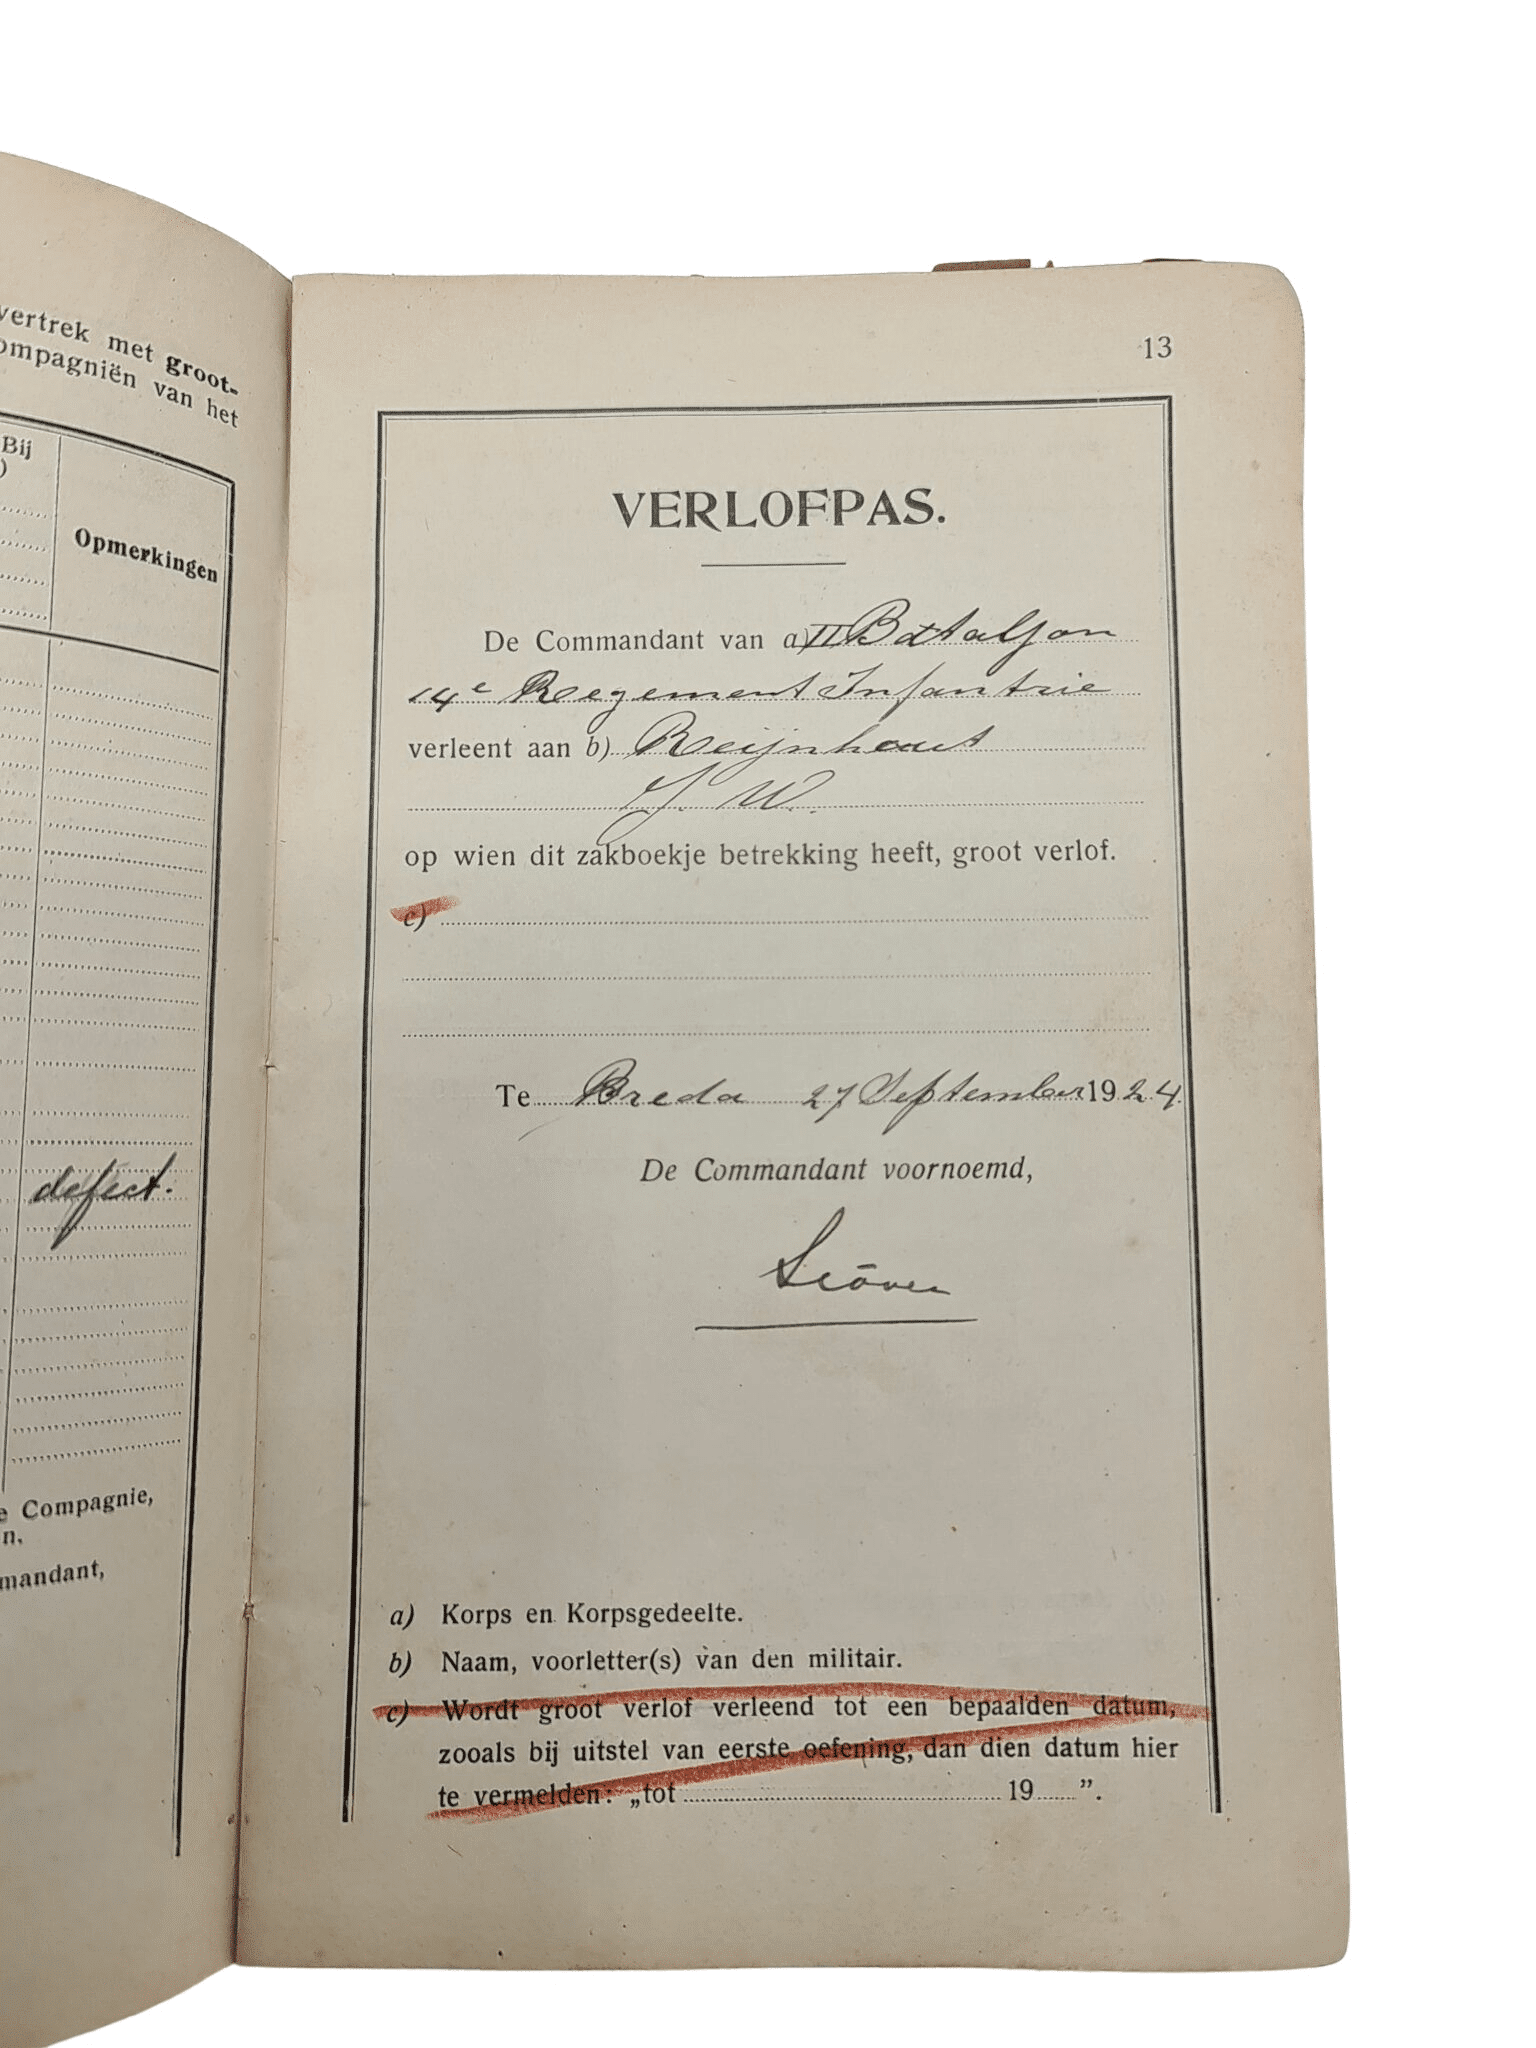 vertrek met groot-
ompagniën van het
Bij
)
Opmerkingen
defect.
e Compagnie,
n.
mandant,
13
VERLOFPAS.
De Commandant van a) II Bataljon
14e Regement Infantrie
verleent aan b) Reijnhout
J. W.
op wien dit zakboekje betrekking heeft, groot verlof.
c)
Te Breda 27 September 1924.
De Commandant voornoemd,
a) Korps en Korpsgedeelte.
b) Naam, voorletter(s) van den militair.
c) Wordt groot verlof verleend tot een bepaalden datum,
zooals bij uitstel van eerste oefening, dan dien datum hier
te vermelden: „tot 19 ”.